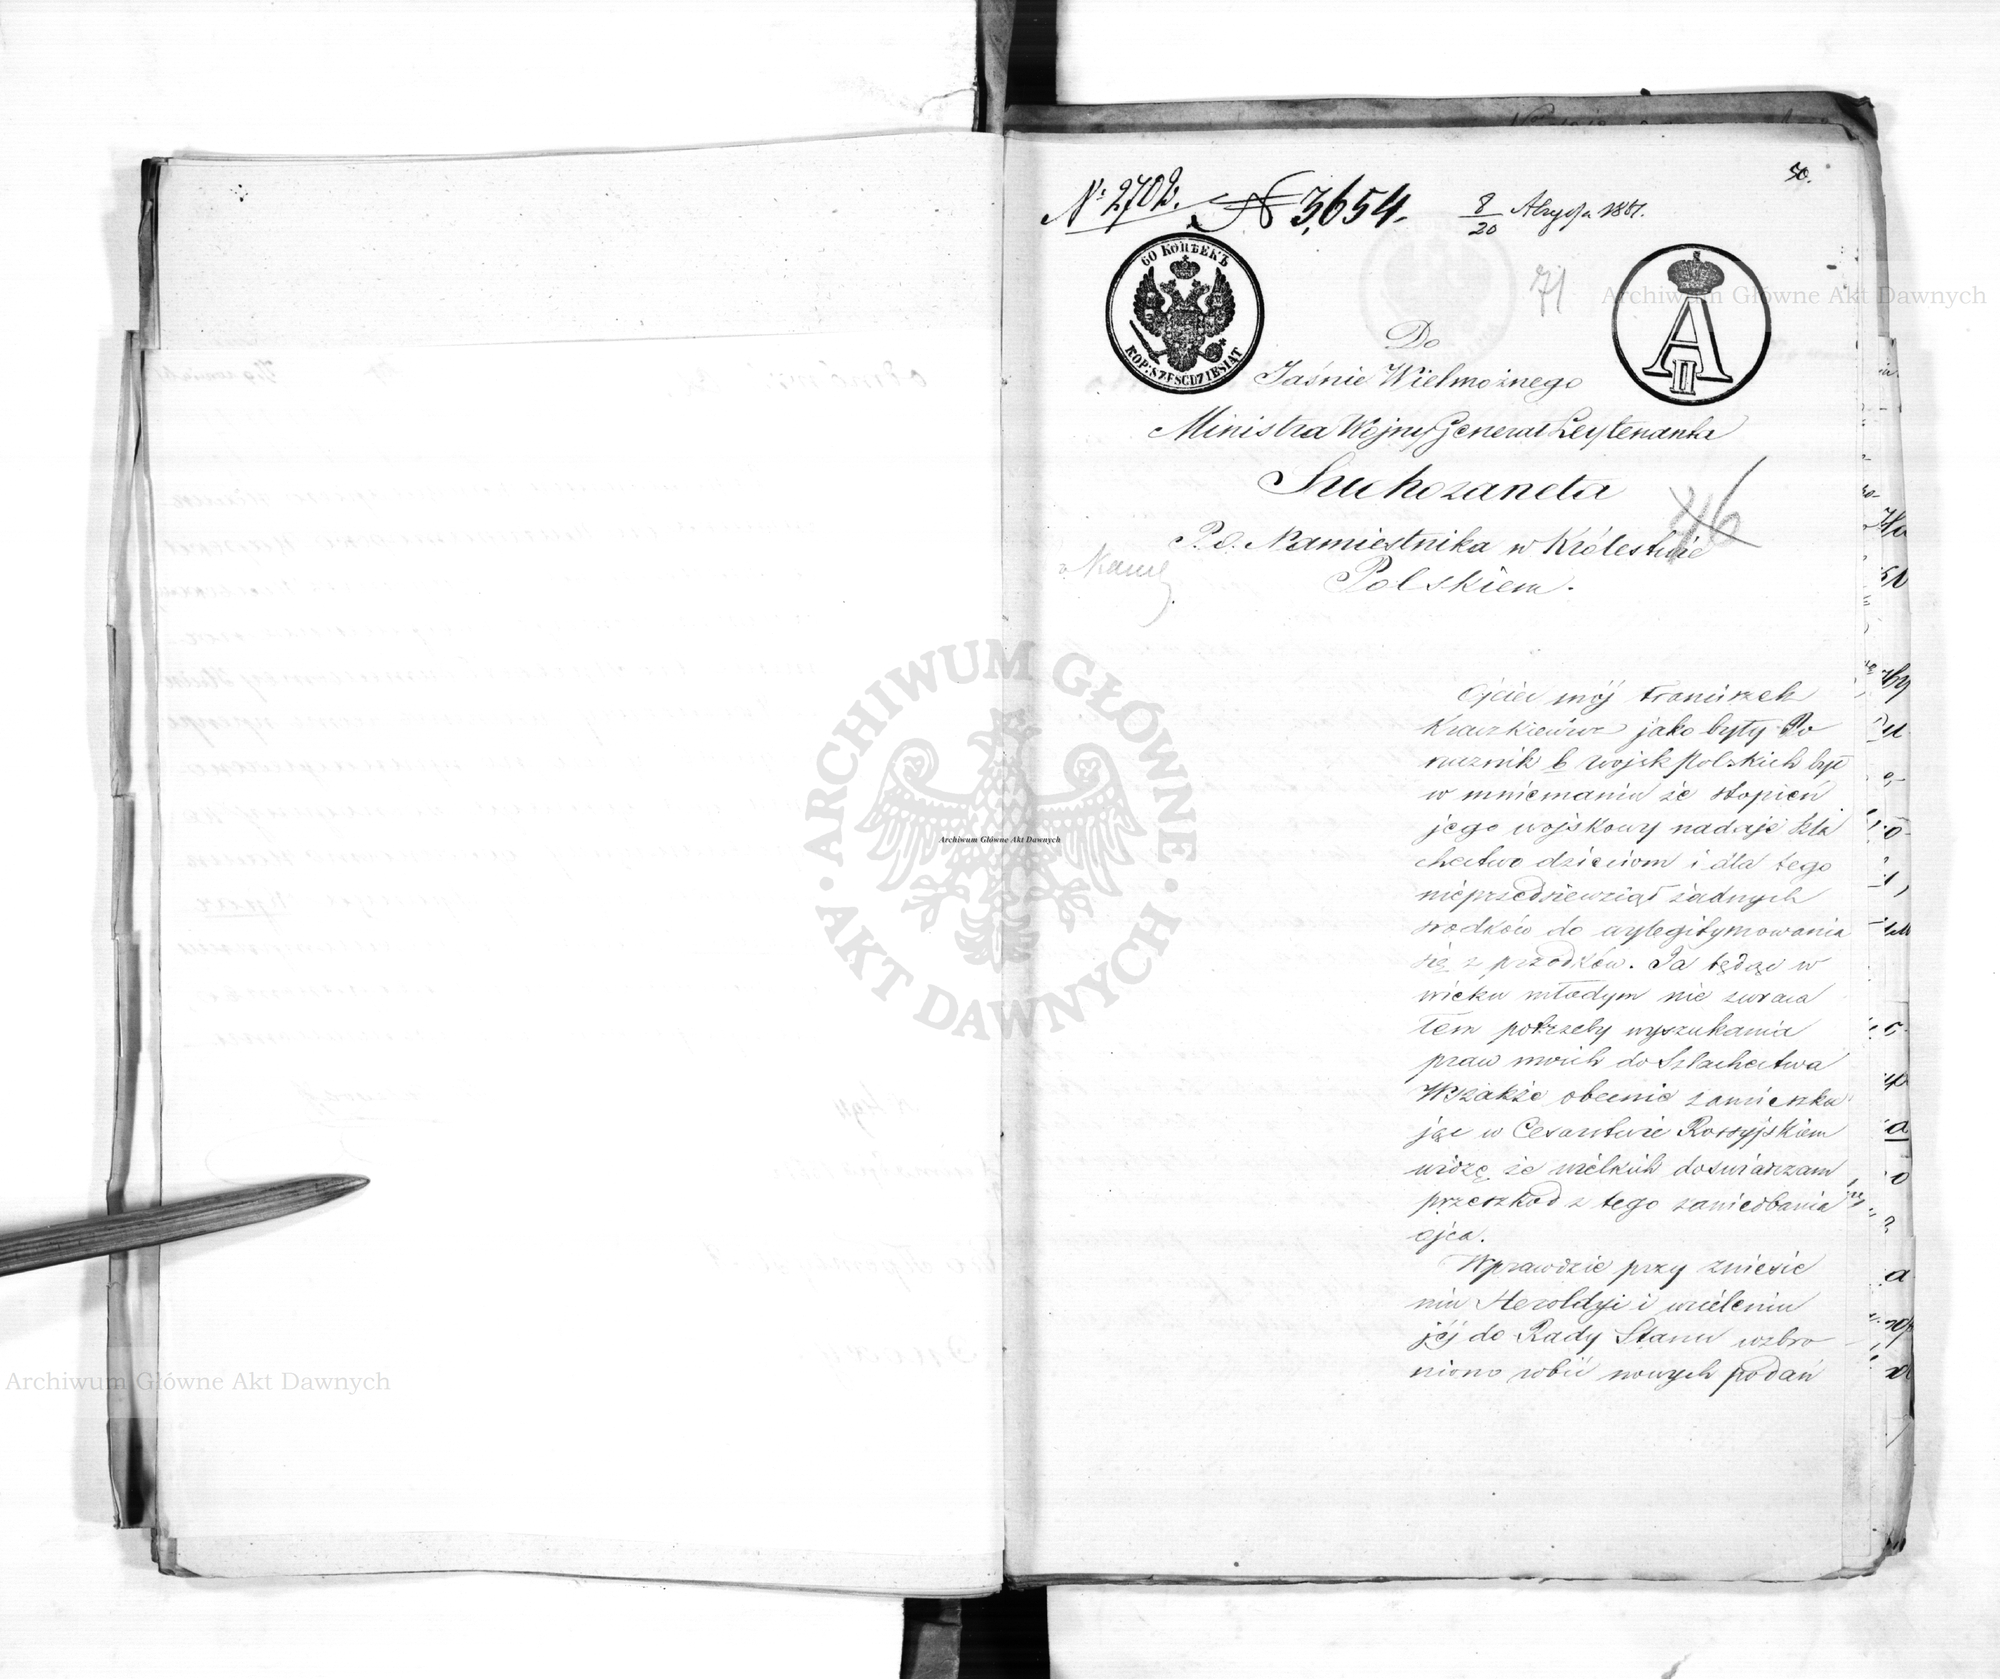 50.
№ 2702.
№ 3654.
8/20 1861.
60 КОПѢЕКЪ
KOP: SZEŚĆDZIESIĄT
A II
71
Do
Jaśnie Wielmożnego
Ministra Wojny Generał Leytenanta
Suchozaneta
P. O. Namiestnika w Królestwie
Polskiem.
46
Ojciec mój Franciszek
jako były Po
rucznik b. Wojsk Polskich był
w mniemaniu że stopień
jego wojskowy nadaje Szla
chectwo dzieciom i dla tego
nieprzedziewziął żadnych
srodków do wylegitymowania
się z przodków. Ja będąc w
wieku młodym nie zwraca
łem potrzeby wyszukania
praw moich do Szlachectwa
Wszakże obecnie zamieszku
jąc w Cesarstwie Rossyjskiem
widzę że wielkich doświadczam
przeszkod z tego zaniedbania
ojca.
Wprawdzie przy zniesie
niu Heroldyi i wcieleniu
jéj do Rady Stanu wzbro
niono robić nowych podań
Archiwum Główne Akt Dawnych
ARCHIWUM GŁÓWNE
AKT DAWNYCH
Archiwum Główne Akt Dawnych
Archiwum Główne Akt Dawnych